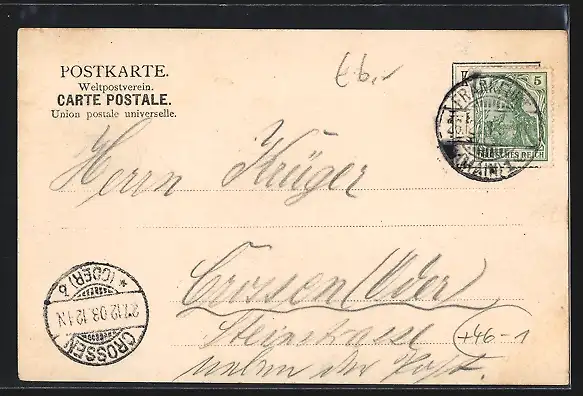 POSTKARTE.
Weltpostverein.
CARTE POSTALE.
Union postale universelle.
6.-
5
FRANKFURT
(MAIN) 1
DEUTSCHES REICH
Herrn Krüger
Crossen (Oder)
Steinstrasse
neben der Post.
+46-1
CROSSEN
27.12.03.12-1N
* (ODER). b